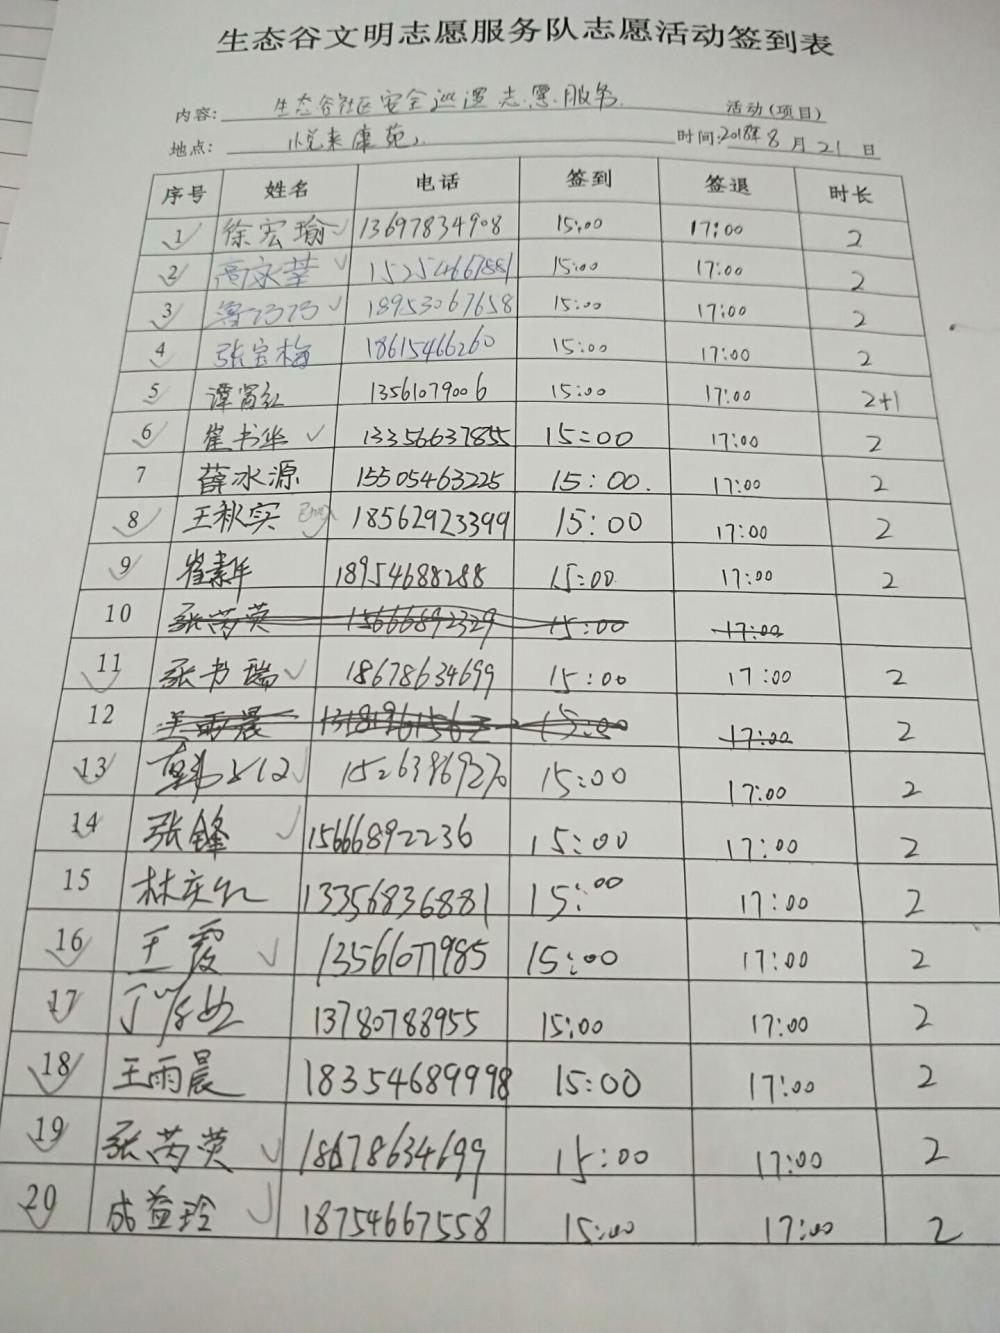 生态谷文明志愿服务队志愿活动签到表
内容: 生态谷社区安全巡逻志愿服务 活动(项目)
地点: 悦来康苑 时间:2018年8月21日
序号 姓名 电话 签到 签退 时长
1 徐宏瑜 13697834908 15:00 17:00 2
2 15254667881 15:00 17:00 2
3 18953067658 15:00 17:00 2
4 张宝梅 18615466260 15:00 17:00 2
5 谭富红 13561079006 15:00 17:00 2+1
6 崔书华 13356637855 15:00 17:00 2
7 薛冰源 15505463225 15:00. 17:00 2
8 王秋实 18562923399 15:00 17:00 2
9 崔素华 18954688288 15:00 17:00 2
10 张芮英 15666892329 15:00 17:00
11 张书瑞 18678634699 15:00 17:00 2
12 王雨晨 13181961563 15:00 17:00 2
13 15263869270 15:00 17:00 2
14 张锋 15666892236 15:00 17:00 2
15 13356836881 15:00 17:00 2
16 王霞 13561077985 15:00 17:00 2
17 13780788955 15:00 17:00 2
18 王雨晨 18354689998 15:00 17:00 2
19 张芮英 18678634699 15:00 17:00 2
20 成益玲 18754667558 15:00 17:00 2